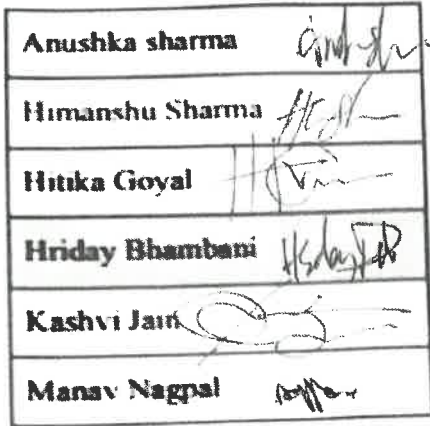 Anushka sharma
Himanshu Sharma
Hitika Goyal
Hriday Bhambani
Kashvi Jain
Manav Nagpal